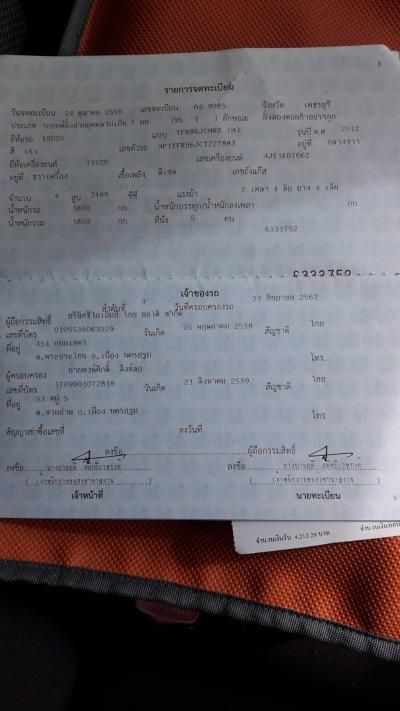 8
รายการจดทะเบียน
วันจดทะเบียน 24 ตุลาคม 2555 เลขทะเบียน กล 9085 จังหวัด เพชรบุรี
ประเภท รถยนต์นั่งส่วนบุคคลไม่เกิน 7 คน (รย. 1 ) ลักษณะ นั่งสองตอนท้ายบรรทุก
ยี่ห้อรถ ISUZU แบบ TFR86JCMR2 (M) รุ่นปี ค.ศ 2012
สี เทา เลขตัวรถ MP1TFR86JCT227883 อยู่ที่ กลางขวา
ยี่ห้อเครื่องยนต์ ISUZU เลขเครื่องยนต์ 4JK1KD7662
อยู่ที่ ขวาเครื่อง เชื้อเพลิง ดีเซล เลขถังแก๊ส
จำนวน 4 สูบ 2499 ซีซี แรงม้า 2 เพลา 4 ล้อ ยาง 4 เส้น
น้ำหนักรถ 1850 กก. น้ำหนักบรรทุก/น้ำหนักลงเพลา กก.
น้ำหนักรวม 1850 กก. ที่นั่ง 5 คน
6333752
6333752
เจ้าของรถ
ลำดับที่ 3 วันที่ครอบครองรถ 23 กันยายน 2562
ผู้ถือกรรมสิทธิ์ บริษัท ไทย ออโต้ จำกัด
เลขที่บัตร 0105538063029 วันเกิด 25 พฤษภาคม 2538 สัญชาติ ไทย
ที่อยู่ 451
ต.พระประโทน อ.เมือง นครปฐม โทร.
ผู้ครอบครอง นายพงษ์ศักดิ์ สิงห์ลอ
เลขที่บัตร 1709901072818 วันเกิด 21 สิงหาคม 2539 สัญชาติ ไทย
ที่อยู่ 53 หมู่ 5
อ.เมือง นครปฐม โทร
สัญญาเช่าซื้อเลขที่ ลงวันที่
ลงชื่อ ผู้ถือกรรมสิทธิ์
ลงชื่อ ลงชื่อ
เจ้าหน้าที่ นายทะเบียน
9
จำนวนเงินรับ 4,212.20 บาท